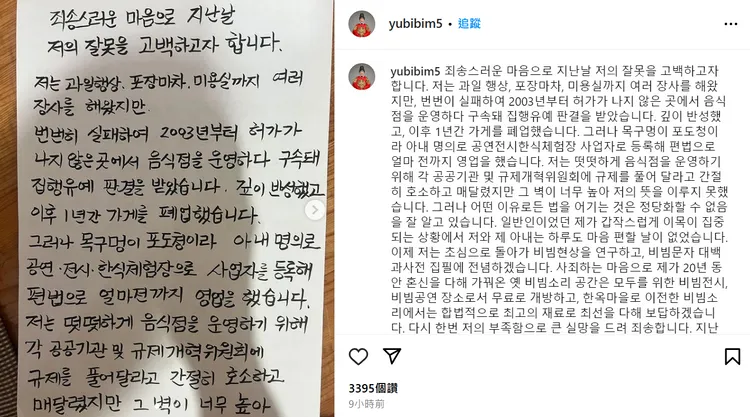 죄송스러운 마음으로 지난날
저의 잘못을 고백하고자 합니다.
저는 과일행상, 포장마차, 미용실까지 여러
장사를 해왔지만,
번번히 실패하여 2003년부터 허가가
나지 않은 곳에서 음식점을 운영하다 구속돼
집행유예 판결을 받았습니다. 깊이 반성했고
이후 1년간 가게를 폐업했습니다.
그러나 목구멍이 포도청이라 아내 명의로
공연·전시·한식체험장으로 사업자를 등록해
편법으로 얼마전까지 영업을 했습니다.
저는 떳떳하게 음식점을 운영하기 위해
각 공공기관 및 규제개혁위원회에
규제를 풀어달라고 간절히 호소하고
매달렸지만 그 벽이 너무 높아
yubibim5 • 追蹤
yubibim5 죄송스러운 마음으로 지난날 저의 잘못을 고백하고자
합니다. 저는 과일 행상, 포장마차, 미용실까지 여러 장사를 해왔
지만, 번번이 실패하여 2003년부터 허가가 나지 않은 곳에서 음식
점을 운영하다 구속돼 집행유예 판결을 받았습니다. 깊이 반성했
고, 이후 1년간 가게를 폐업했습니다. 그러나 목구멍이 포도청이
라 아내 명의로 공연전시한식체험장 사업자로 등록해 편법으로
얼마 전까지 영업을 했습니다. 저는 떳떳하게 음식점을 운영하기
위해 각 공공기관 및 규제개혁위원회에 규제를 풀어 달라고 간절
히 호소하고 매달렸지만 그 벽이 너무 높아 저의 뜻을 이루지 못했
습니다. 그러나 어떤 이유로든 법을 어기는 것은 정당화할 수 없음
을 잘 알고 있습니다. 일반인이었던 제가 갑작스럽게 이목이 집중
되는 상황에서 저와 제 아내는 하루도 마음 편할 날이 없었습니다.
이제 저는 초심으로 돌아가 비빔현상을 연구하고, 비빔문자 대백
과사전 집필에 전념하겠습니다. 사죄하는 마음으로 제가 20년 동
안 혼신을 다해 가꿔온 옛 비빔소리 공간은 모두를 위한 비빔전시,
비빔공연 장소로서 무료로 개방하고, 한옥마을로 이전한 비빔소
리에서는 합법적으로 최고의 재료로 최선을 다해 보답하겠습니
다. 다시 한번 저의 부족함으로 큰 실망을 드려 죄송합니다. 지난
3395個讚
9小時前